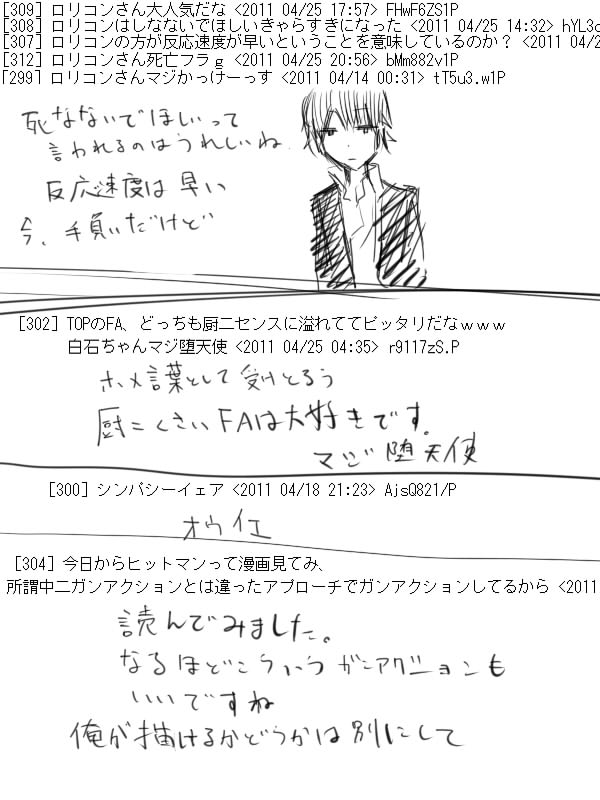 [309] ロリコンさん大人気だな <2011 04/25 17:57> FHwF6ZS1P
[308] ロリコンはしなないでほしいきゃらすきになった <2011 04/25 14:32> hYL3c
[307] ロリコンの方が反応速度が早いということを意味しているのか？ <2011 04/2
[312] ロリコンさん死亡フラｇ <2011 04/25 20:56> bMm882v1P
[299] ロリコンさんマジかっけーっす <2011 04/14 00:31> tT5u3.w1P
死なないでほしいって
言われるのはうれしいね
反応速度は早い
今、手負いだけど
[302] TOPのFA、どっちも厨二センスに溢れててピッタリだなｗｗｗ
白石ちゃんマジ堕天使 <2011 04/25 04:35> r9117zS.P
ホメ言葉として受けとろう
厨二くさいFAは大好きです。
マジ堕天使
[300] シンバシーイェア <2011 04/18 21:23> AjsQ821/P
オウイエ
[304] 今日からヒットマンって漫画見てみ、
所謂中二ガンアクションとは違ったアプローチでガンアクションしてるから <2011
読んでみました。
なるほどこういうガンアクションも
いいですね
俺が描けるかどうかは別にして